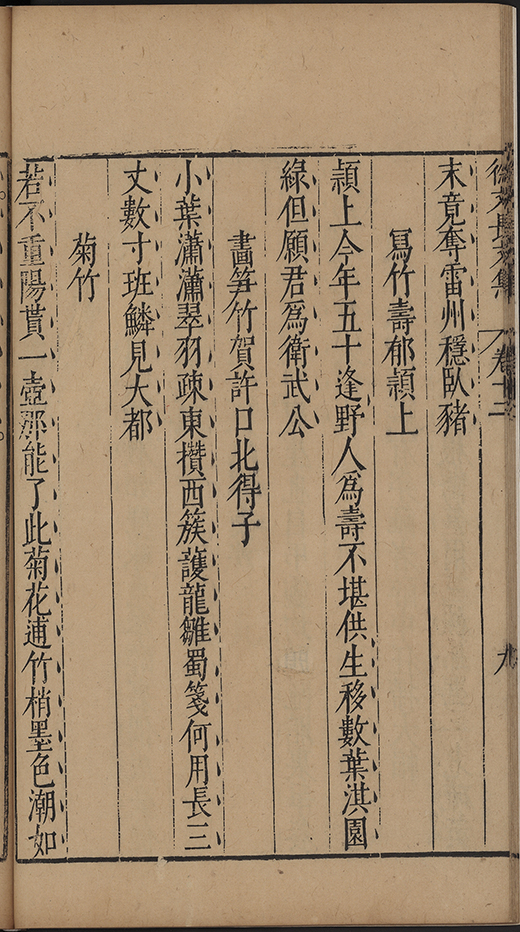 徐文長文集 卷十二 九
末竟奪雷州穩臥豬
寫竹壽郁頴上
頴上今年五十逢野人爲壽不堪供生移數葉淇園
綠但願君爲衛武公
畫笋竹賀許口北得子
小葉瀟瀟翠羽疎東攢西簇護龍雛蜀箋何用長三
丈數寸班鱗見大都
菊竹
若不重陽貰一壺那能了此菊花逋竹梢墨色潮如